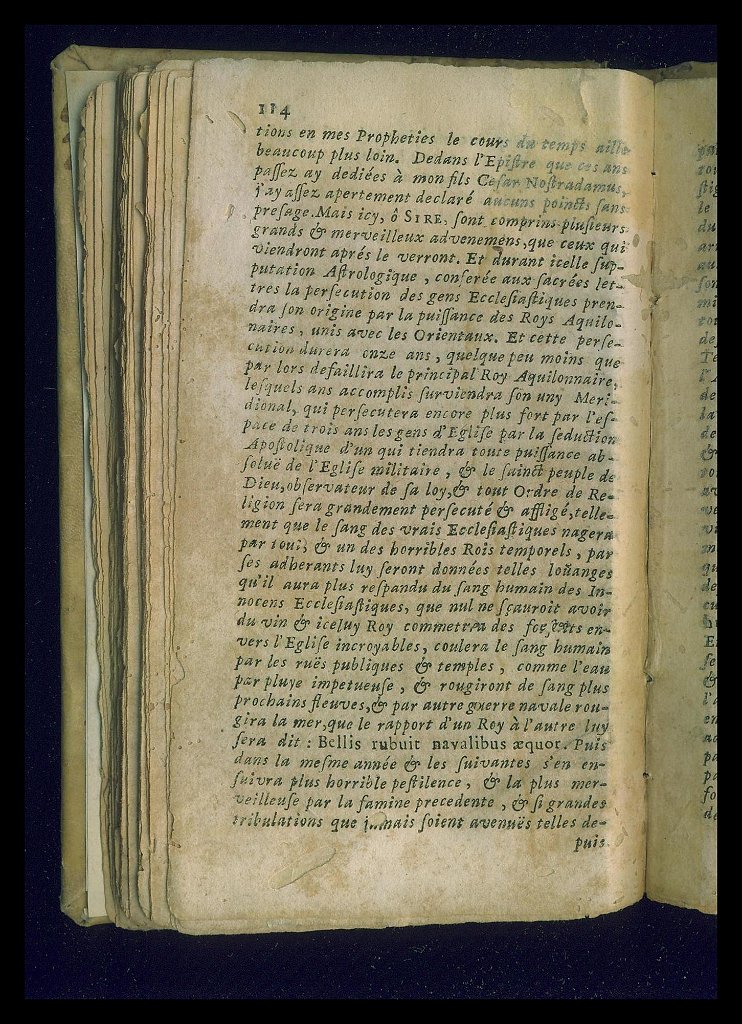 114
tions en mes Propheties le cours du temps aille
beaucoup plus loin. Dedans l'Epiſtre que ces ans
paſſez ay dediées à mon fils Ceſar Noſtradamus,
j'ay aſſez apertement declaré aucuns poincts ſans
preſage. Mais icy, ô SIRE, ſont comprins pluſieurs
grands & merveilleux advenemens, que ceux qui
viendront aprés le verront. Et durant icelle ſup-
putation Aſtrologique, conferée aux ſacrées let-
tres la perſecution des gens Eccleſiaſtiques pren-
dra ſon origine par la puiſſance des Roys Aquilo-
naires, unis avec les Orientaux. Et cette perſe-
cution durera onze ans, quelque peu moins que
par lors defaillira le principal Roy Aquilonnaire,
leſquels ans accomplis ſurviendra ſon uny Meri-
dional, qui perſecutera encore plus fort par l'eſ-
pace de trois ans les gens d'Egliſe par la ſeduction
Apoſtolique d'un qui tiendra toute puiſſance ab-
ſoluë de l'Egliſe militaire, & le ſainct peuple de
Dieu, obſervateur de ſa loy, & tout Ordre de Re-
ligion ſera grandement perſecuté & affligé, telle-
ment que le ſang des vrais Eccleſiaſtiques nagera
par tout, & un des horribles Rois temporels, par
ſes adherants luy ſeront données telles loüanges
qu'il aura plus reſpandu du ſang humain des In-
nocens Eccleſiaſtiques, que nul ne ſçauroit avoir
du vin & iceluy Roy commettra des en-
vers l'Egliſe incroyables, coulera le ſang humain
par les ruës publiques & temples, comme l'eau
par pluye impetueuſe, & rougiront de ſang plus
prochains fleuves, & par autre guerre navale rou-
gira la mer, que le rapport d'un Roy à l'autre luy
ſera dit : Bellis rubuit navalibus æquor. Puis
dans la meſme année & les ſuivantes s'en en-
ſuivra plus horrible peſtilence, & la plus mer-
veilleuſe par la famine precedente, & ſi grandes
tribulations que jamais ſoient avenuës telles de-
puis